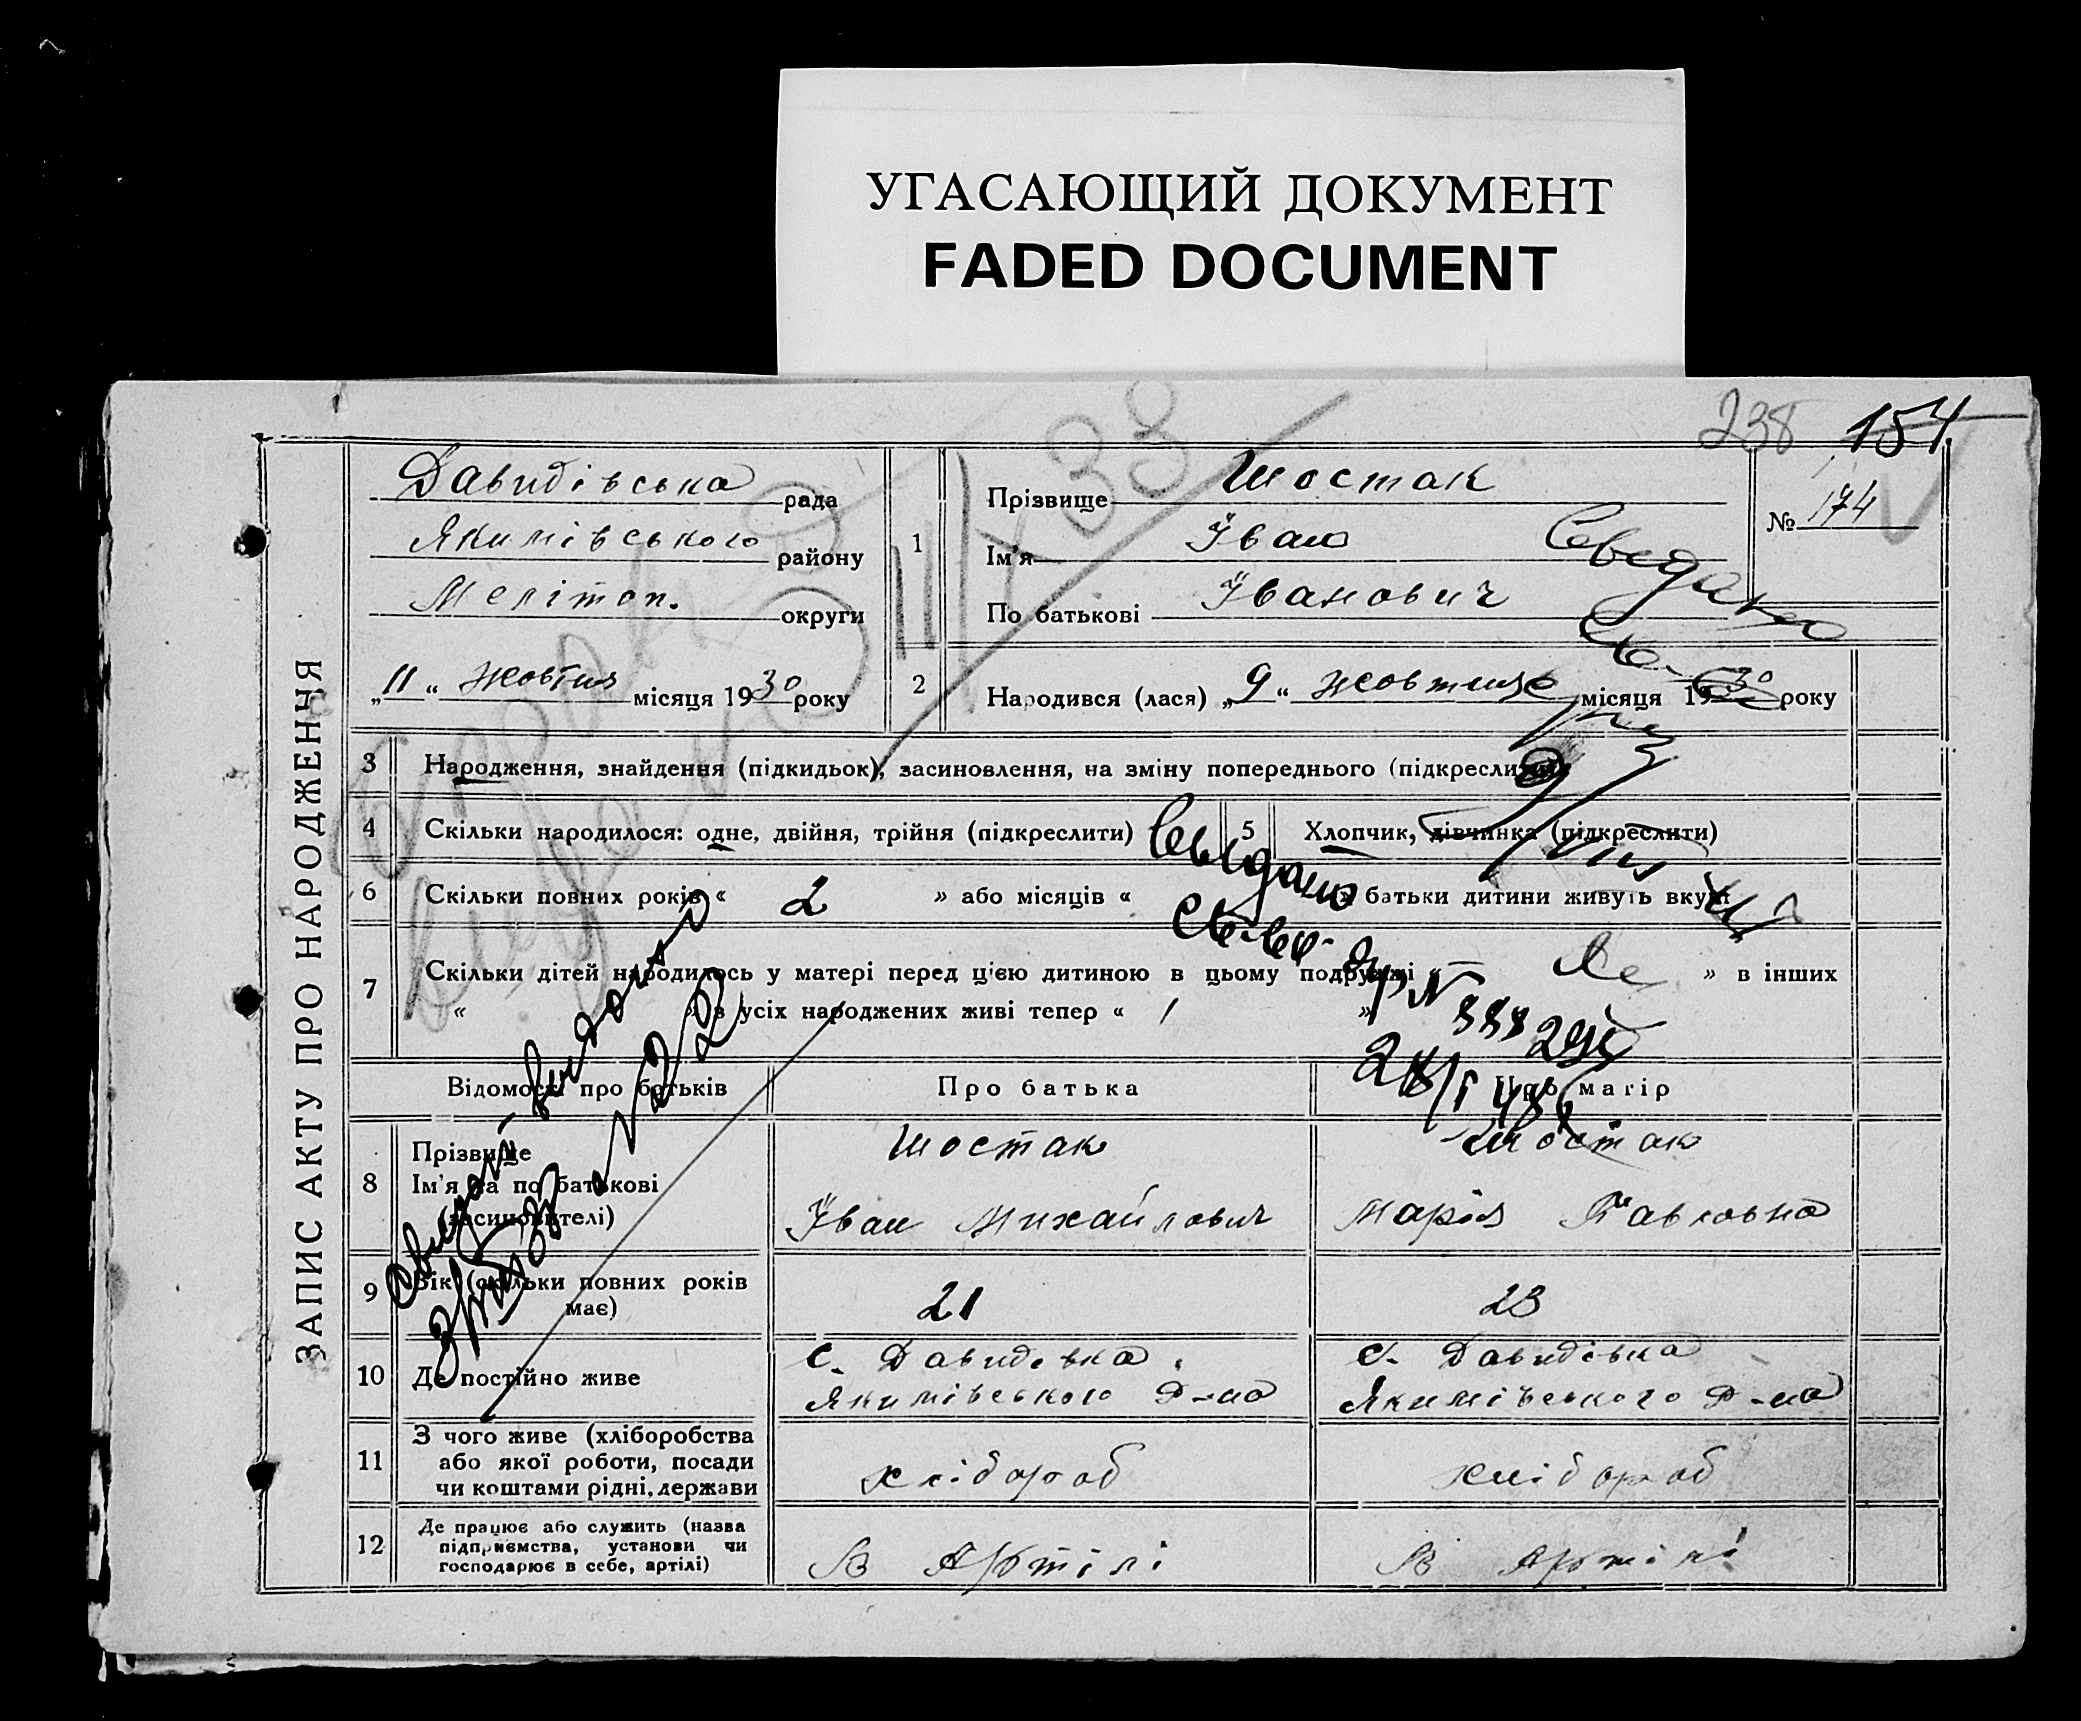 УГАСАЮЩИЙ ДОКУМЕНТ
FADED DOCUMENT
238 154
ЗАПИС АКТУ ПРО НАРОДЖЕННЯ
Давидівська рада
Якимівського району
Меліто́п. округи
„11“ жовтня місяця 1930 року
1
Прізвище Шостак
Ім'я Іван
По батькові Іванович
№ 174
2
Народився (лася) „9“ жовтня місяця 1930 року
3 Народження, знайдення (підкидьок), засиновлення, на зміну попереднього (підкреслити)
4 Скільки народилося: одне, двійня, трійня (підкреслити)
5 Хлопчик, дівчинка (підкреслити)
6 Скільки повних років « 2 » або місяців « » батьки дитини живуть вкупі
7 Скільки дітей народилось у матері перед цією дитиною в цьому подружжі « » в інших
« » з усіх народжених живі тепер « 1 »
Відомості про батьків Про батька Про матір
8 Прізвище
Ім'я та по батькові
(засиновителі)
Шостак
Іван Михайлович
Шостак
Марія Павловна
9 Вік (скільки повних років
має)
21 23
10 Де постійно живе
с. Давидівка
Якимівського Р-на
с. Давидівка
Якимівського Р-на
11 З чого живе (хліборобства
або якої роботи, посади
чи коштами рідні, держави
хлібороб хлібороб
12 Де працює або служить (назва
підприємства, установи чи
господарює в себе, артілі)
В Артілі В Артілі